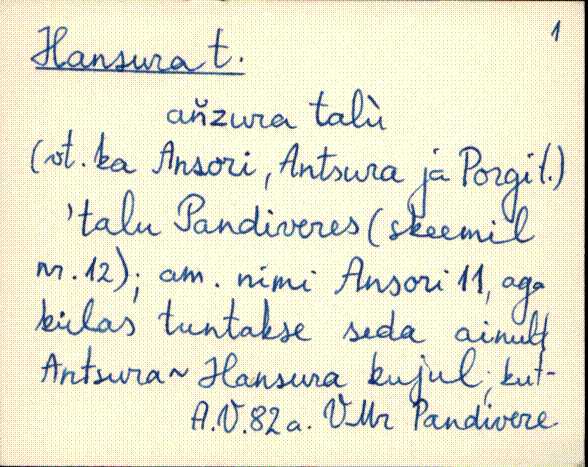 1
Hansura t.
ań̌zura talù
(vt. ka Ansori, Antsura ja Porgi t.)
'talu Pandiveres (skeemil
nr. 12); am. nimi Ansori 11, aga
külas tuntakse seda ainult
Antsura ~ Hansura kujul; kut-
A.V. 82 a. VMr Pandivere